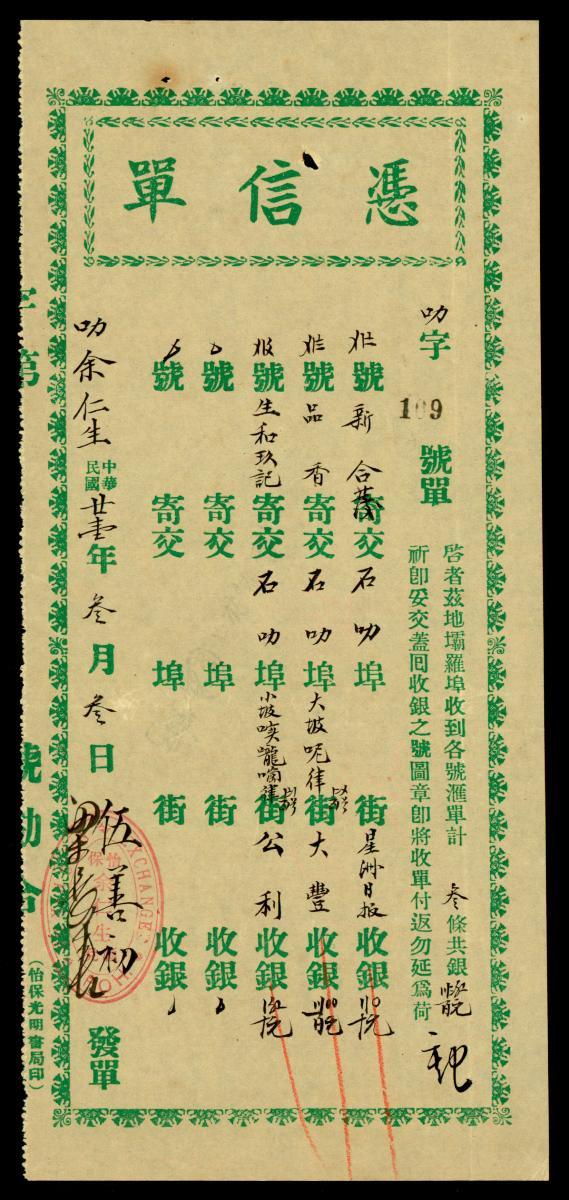 憑信單
叻字109號單
啓者茲地壩羅埠收到各號滙單計叁條共銀
祈卽妥交蓋囘收銀之號圖章卽將收單付返勿延爲荷
號新合茂寄交石叻埠街星洲日报收銀
號品香寄交石叻埠大坡呢律街大豐收銀
號生和玖記寄交石叻埠小坡街公利收銀
號寄交埠街收銀
號寄交埠街收銀
叻余仁生中華民國廿壹年叁月叁日伍善初發單
EXCHANGES
怡保
余仁生
字第
號勘合
(怡保光明書局印)